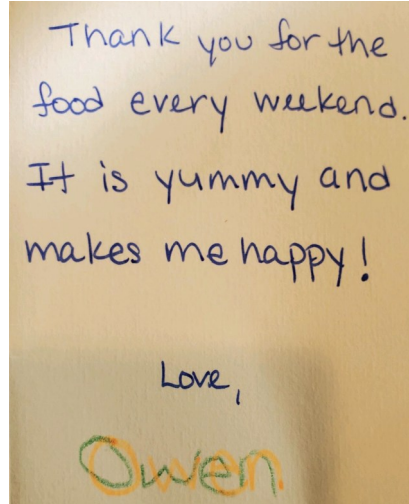 Thank you for the
food every weekend.
It is yummy and
makes me happy!
Love,
Owen